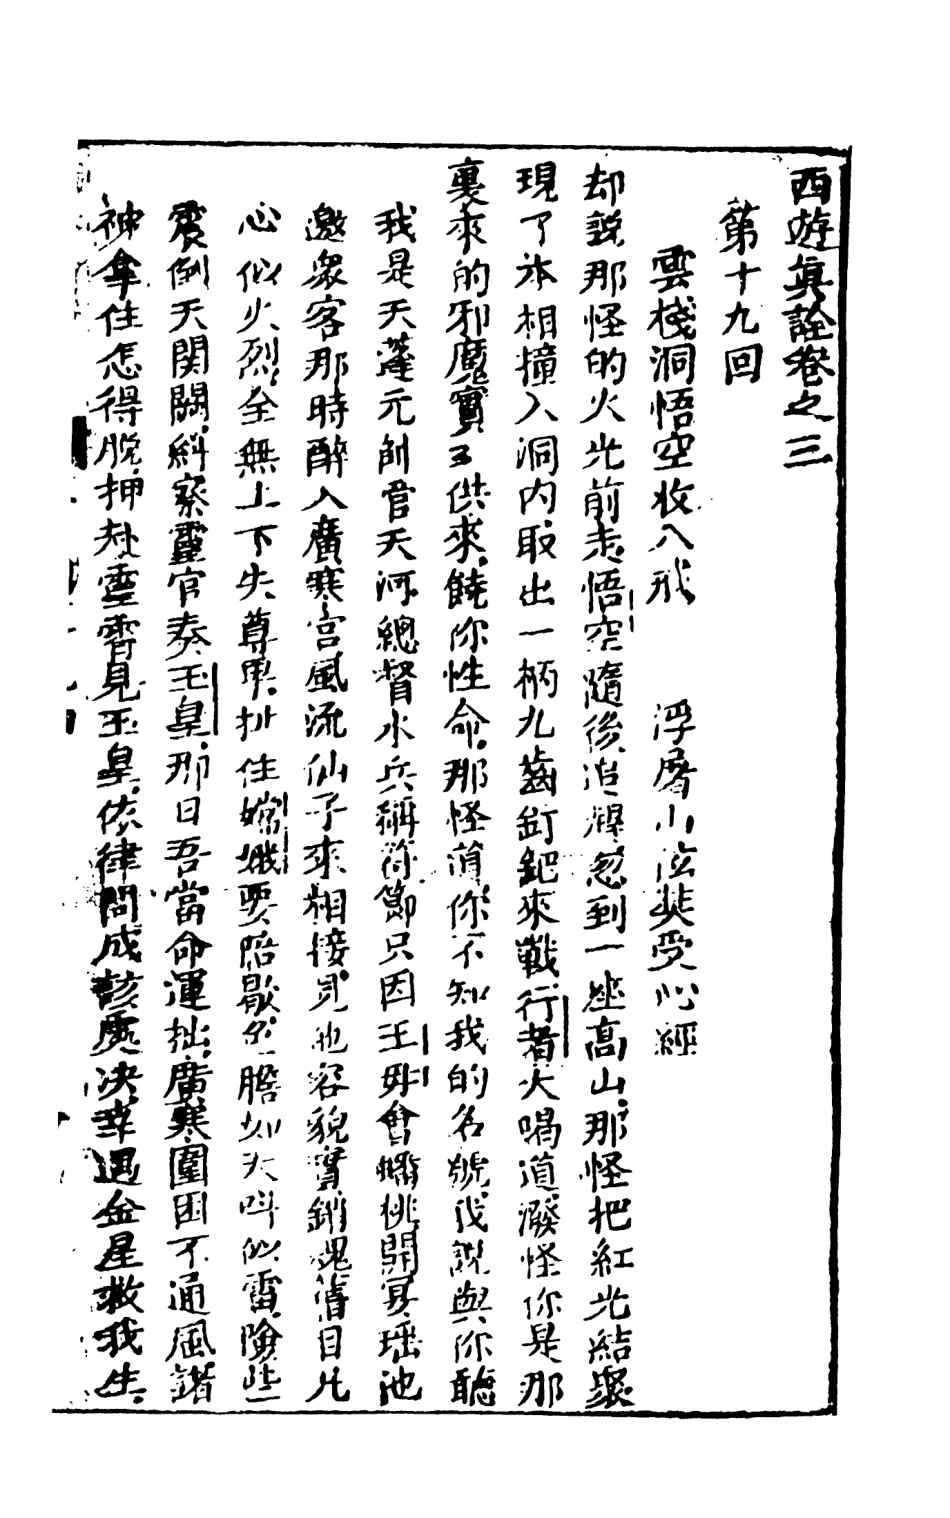 西遊真詮卷之三
第十九回
雲棧洞悟空收八戒　浮屠山玄奘受心經
却説那怪的火光前走悟空隨後追趕忽到一座高山那怪把紅光結聚
現了本相撞入洞内取出一柄九齒釘鈀來戰行者大喝道潑怪你是那
裏來的邪魔實供來饒你性命那怪道你不知我的名號我説與你聽
我是天蓬元帥官天河總督水兵稱符節只因王母會蟠桃開宴瑶池
邀衆客那時醉入廣寒宮風流仙子來相接見他容貌實銷魂舊日凡
心似火烈全無上下失尊卑扯住嫦娥要陪歇色膽如天叫似雷險些
震倒天関闕糾察靈官奏玉皇那日吾當命運拙廣寒圍困不通風諸
神拿住怎得脱押赴靈霄見玉皇依律問成該處决幸遇金星救我生